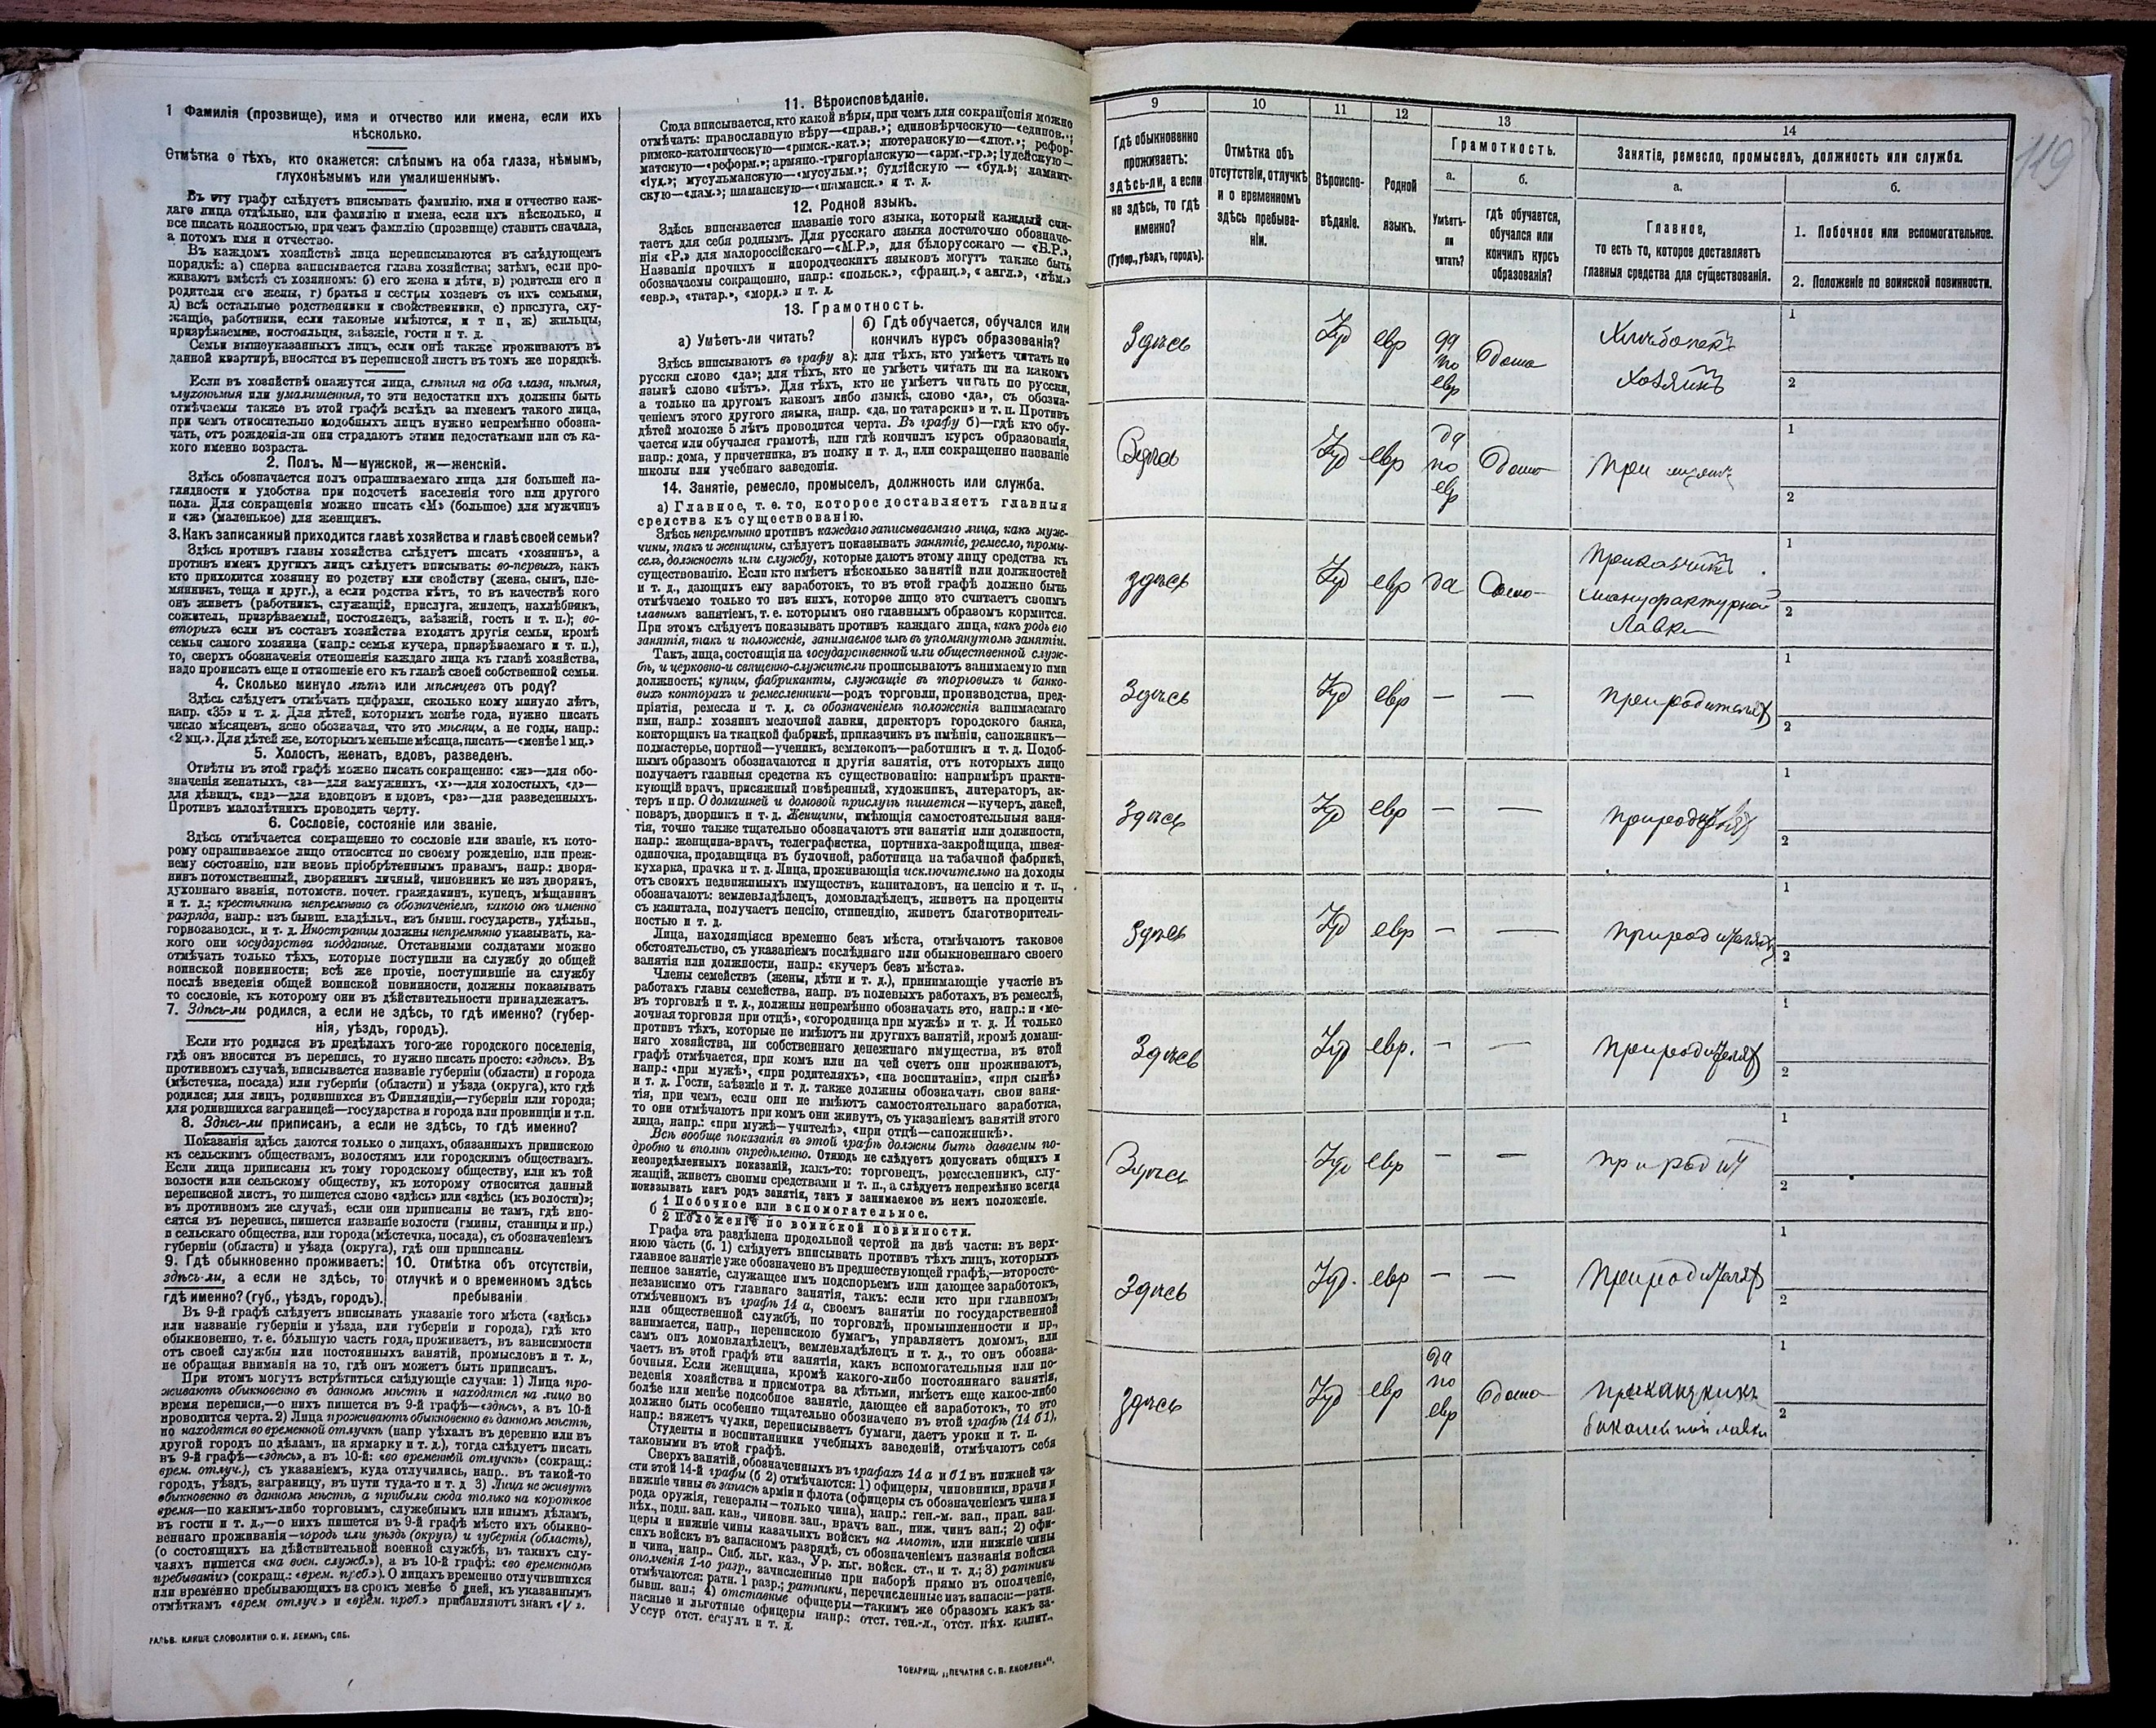 1 Фамилія (прозвище), имя и отчество или имена, если ихъ
нѣсколько.
Отмѣтка о тѣхъ, кто окажется: слѣпымъ на оба глаза, нѣмымъ,
глухонѣмымъ или умалишеннымъ.
Въ эту графу слѣдуетъ вписывать фамилію, имя и отчество каж-
даго лица отдѣльно, или фамилію и имена, если ихъ нѣсколько, и
все писать полностью, при чемъ фамилію (прозвище) ставить сначала,
а потомъ имя и отчество.
Въ каждомъ хозяйствѣ лица переписываются въ слѣдующемъ
порядкѣ: а) сперва записывается глава хозяйства; затѣмъ, если про-
живаютъ вмѣстѣ съ хозяиномъ: б) его жена и дѣти, в) родители его и
родители его жены, г) братья и сестры хозяевъ съ ихъ семьями,
д) всѣ остальные родственники и свойственники, е) прислуга, слу-
жащіе, работники, если таковые имѣются, и т п, ж) жильцы,
призрѣваемые, постояльцы, заѣзжіе, гости и т. д.
Семьи вышеуказанныхъ лицъ, если онѣ также проживаютъ въ
данной квартирѣ, вносятся въ переписной листъ въ томъ же порядкѣ.
Если въ хозяйствѣ окажутся лица, слѣпыя на оба глаза, нѣмыя,
глухонѣмыя или умалишенныя, то эти недостатки ихъ должны быть
отмѣчаемы также въ этой графѣ вслѣдъ за именемъ такого лица,
при чемъ относительно подобныхъ лицъ нужно непремѣнно обозна-
чать, отъ рожденія-ли они страдаютъ этими недостатками или съ ка-
кого именно возраста.
2. Полъ. М—мужской, ж—женскій.
Здѣсь обозначается полъ опрашиваемаго лица для большей на-
глядности и удобства при подсчетѣ населенія того или другого
пола. Для сокращенія можно писать «М» (большое) для мужчинъ
и «ж» (маленькое) для женщинъ.
3. Какъ записанный приходится главѣ хозяйства и главѣ своей семьи?
Здѣсь противъ главы хозяйства слѣдуетъ писать «хозяинъ», а
противъ именъ другихъ лицъ слѣдуетъ вписывать: во-первыхъ, какъ
кто приходится хозяину по родству или свойству (жена, сынъ, пле-
мянникъ, теща и друг.), а если родства нѣтъ, то въ качествѣ кого
онъ живетъ (работникъ, служащій, прислуга, жилецъ, нахлѣбникъ,
сожитель, призрѣваемый, постоялецъ, заѣзжій, гость и т. п.); во-
вторыхъ если въ составъ хозяйства входятъ другія семьи, кромѣ
семьи самого хозяина (напр.: семья кучера, призрѣваемаго и т. п.),
то, сверхъ обозначенія отношенія каждаго лица къ главѣ хозяйства,
надо прописать еще и отношеніе его къ главѣ своей собственной семьи.
4. Сколько минуло лѣтъ или мѣсяцевъ отъ роду?
Здѣсь слѣдуетъ отмѣчать цифрами, сколько кому минуло лѣтъ,
напр. «35» и т. д. Для дѣтей, которымъ менѣе года, нужно писать
число мѣсяцевъ, ясно обозначая, что это мѣсяцы, а не годы, напр.:
«2 мц.». Для дѣтей же, которымъ меньше мѣсяца, писать—«менѣе 1 мц.»
5. Холостъ, женатъ, вдовъ, разведенъ.
Отвѣты въ этой графѣ можно писать сокращенно: «ж»—для обо-
значенія женатыхъ, «з»—для замужнихъ, «х»—для холостыхъ, «д»—
для дѣвицъ, «вд»—для вдовцовъ и вдовъ, «рз»—для разведенныхъ.
Противъ малолѣтнихъ проводить черту.
6. Сословіе, состояніе или званіе.
Здѣсь отмѣчается сокращенно то сословіе или званіе, къ кото-
рому опрашиваемое лицо относится по своему рожденію, или преж-
нему состоянію, или вновь пріобрѣтеннымъ правамъ, напр.: дворя-
нинъ потомственный, дворянинъ личный, чиновникъ не изъ дворянъ,
духовнаго званія, потомств. почет. гражданинъ, купецъ, мѣщанинъ
и т. д.; крестьянинъ непремѣнно съ обозначеніемъ, какого онъ именно
разряда, напр.: изъ бывш. владѣльч., изъ бывш. государств., удѣльн.,
горнозаводск., и т. д. Иностранцы должны непремѣнно указывать, ка-
кого они государства подданные. Отставными солдатами можно
отмѣчать только тѣхъ, которые поступили на службу до общей
воинской повинности; всѣ же прочіе, поступившіе на службу
послѣ введенія общей воинской повинности, должны показывать
то сословіе, къ которому они въ дѣйствительности принадлежатъ.
7. Здѣсь-ли родился, а если не здѣсь, то гдѣ именно? (губер-
нія, уѣздъ, городъ).
Если кто родился въ предѣлахъ того-же городского поселенія,
гдѣ онъ вносится въ перепись, то нужно писать просто: «здѣсь». Въ
противномъ случаѣ, вписывается названіе губерніи (области) и города
(мѣстечка, посада) или губерніи (области) и уѣзда (округа), кто гдѣ
родился; для лицъ, родившихся въ Финляндіи,—губерніи или города;
для родившихся заграницей—государства и города или провинціи и т.п.
8. Здѣсь-ли приписанъ, а если не здѣсь, то гдѣ именно?
Показанія здѣсь даются только о лицахъ, обязанныхъ припискою
къ сельскимъ обществамъ, волостямъ или городскимъ обществамъ.
Если лица приписаны къ тому городскому обществу, или къ той
волости или сельскому обществу, къ которому относится данный
переписной листъ, то пишется слово «здѣсь» или «здѣсь (къ волости)»;
въ противномъ же случаѣ, если они приписаны не тамъ, гдѣ вно-
сятся въ перепись, пишется названіе волости (гмины, станицы и пр.)
и сельскаго общества, или города (мѣстечка, посада), съ обозначеніемъ
губерніи (области) и уѣзда (округа), гдѣ они приписаны.
9. Гдѣ обыкновенно проживаетъ:
здѣсь-ли, а если не здѣсь, то
гдѣ именно? (губ., уѣздъ, городъ).
10. Отмѣтка объ отсутствіи,
отлучкѣ и о временномъ здѣсь
пребываніи
Въ 9-й графѣ слѣдуетъ вписывать указаніе того мѣста («здѣсь»
или названіе губерніи и уѣзда, или губерніи и города), гдѣ кто
обыкновенно, т. е. бо́льшую часть года, проживаетъ, въ зависимости
отъ своей службы или постоянныхъ занятій, промысловъ и т. д.,
не обращая вниманія на то, гдѣ онъ можетъ быть приписанъ.
При этомъ могутъ встрѣтиться слѣдующіе случаи: 1) Лица про-
живаютъ обыкновенно въ данномъ мѣстѣ и находятся на лицо во
время переписи,—о нихъ пишется въ 9-й графѣ—«здѣсь», а въ 10-й
проводится черта. 2) Лица проживаютъ обыкновенно въ данномъ мѣстѣ,
но находятся во временной отлучкѣ (напр уѣхалъ въ деревню или въ
другой городъ по дѣламъ, на ярмарку и т. д.), тогда слѣдуетъ писать
въ 9-й графѣ—«здѣсь», а въ 10-й: «во временной отлучкѣ» (сокращ.:
врем. отлуч.), съ указаніемъ, куда отлучились, напр.. въ такой-то
городъ, уѣздъ, заграницу, въ пути туда-то и т. д 3) Лица не живутъ
обыкновенно въ данномъ мѣстѣ, а прибыли сюда только на короткое
время—по какимъ-либо торговымъ, служебнымъ или инымъ дѣламъ,
въ гости и т. д.,—о нихъ пишется въ 9-й графѣ мѣсто ихъ обыкно-
веннаго проживанія—городъ или уѣздъ (округъ) и губернія (область),
(о состоящихъ на дѣйствительной военной службѣ, въ такихъ слу-
чаяхъ пишется «на воен. службѣ»), а въ 10-й графѣ: «во временномъ
пребываніи» (сокращ.: «врем. преб.»). О лицахъ временно отлучившихся
или временно пребывающихъ на срокъ менѣе 6 дней, къ указаннымъ
отмѣткамъ «врем отлуч» и «врем. преб.» прибавляютъ знакъ «V».
ГАЛЬВ. КЛИШЕ СЛОВОЛИТНИ О. И. ЛЕМАНЪ, СПБ.
11. Вѣроисповѣданіе.
Сюда вписывается, кто какой вѣры, при чемъ для сокращенія можно
отмѣчать: православную вѣру—«прав.»; единовѣрческую—«единов.»;
римско-католическую—«римск.-кат.»; лютеранскую—«лют.»; рефор-
матскую—«реформ.»; армяно.-григоріанскую—«арм.-гр.»; іудейскую—
«іуд.»; мусульманскую—«мусульм.»; буддійскую — «буд.»; ламаит-
скую—«лам.»; шаманскую—«шаманск.» и т. д.
12. Родной языкъ.
Здѣсь вписывается названіе того языка, который каждый счи-
таетъ для себя роднымъ. Для русскаго языка достаточно обозначе-
нія «Р.» для малороссійскаго—«М.Р.», для бѣлорусскаго — «Б.Р.»,
Названія прочихъ и инородческихъ языковъ могутъ также быть
обозначаемы сокращенно, напр.: «польск.», «франц.», «англ.», «нѣм.»
«евр.», «татар.», «морд.» и т. д.
13. Грамотность.
а) Умѣетъ-ли читать?
б) Гдѣ обучается, обучался или
кончилъ курсъ образованія?
Здѣсь вписываютъ въ графу а): для тѣхъ, кто умѣетъ читать по
русски слово «да»; для тѣхъ, кто не умѣетъ читать ни на какомъ
языкѣ слово «нѣтъ». Для тѣхъ, кто не умѣетъ читать по русски,
а только на другомъ какомъ либо языкѣ, слово «да», съ обозна-
ченіемъ этого другого языка, напр. «да, по татарски» и т. п. Противъ
дѣтей моложе 5 лѣтъ проводится черта. Въ графу б)—гдѣ кто обу-
чается или обучался грамотѣ, или гдѣ кончилъ курсъ образованія,
напр.: дома, у причетника, въ полку и т. д., или сокращенно названіе
школы или учебнаго заведенія.
14. Занятіе, ремесло, промыселъ, должность или служба.
а) Главное, т. е. то, которое доставляетъ главныя
средства къ существованію.
Здѣсь непремѣнно противъ каждаго записываемаго лица, какъ муж-
чины, такъ и женщины, слѣдуетъ показывать занятіе, ремесло, промы-
селъ, должность или службу, которые даютъ этому лицу средства къ
существованію. Если кто имѣетъ нѣсколько занятій или должностей
и т. д., дающихъ ему заработокъ, то въ этой графѣ должно быть
отмѣчаемо только то изъ нихъ, которое лицо это считаетъ своимъ
главнымъ занятіемъ, т. е. которымъ оно главнымъ образомъ кормится.
При этомъ слѣдуетъ показывать противъ каждаго лица, какъ родъ его
занятія, такъ и положеніе, занимаемое имъ въ упомянутомъ занятіи.
Такъ, лица, состоящія на государственной или общественной служ-
бѣ, и церковно-и священно-служители прописываютъ занимаемую ими
должность; купцы, фабриканты, служащіе въ торговыхъ и банко-
выхъ конторахъ и ремесленники—родъ торговли, производства, пред-
пріятія, ремесла и т. д. съ обозначеніемъ положенія занимаемаго
ими, напр.: хозяинъ мелочной лавки, директоръ городского банка,
конторщикъ на ткацкой фабрикѣ, приказчикъ въ имѣніи, сапожникъ—
подмастерье, портной—ученикъ, землекопъ—работникъ и т. д. Подоб-
нымъ образомъ обозначаются и другія занятія, отъ которыхъ лицо
получаетъ главныя средства къ существованію: напримѣръ практи-
кующій врачъ, присяжный повѣренный, художникъ, литераторъ, ак-
теръ и пр. О домашней и домовой прислугѣ пишется—кучеръ, лакей,
поваръ, дворникъ и т. д. Женщины, имѣющія самостоятельныя заня-
тія, точно также тщательно обозначаютъ эти занятія или должности,
напр.: женщина-врачъ, телеграфистка, портниха-закройщица, швея-
одиночка, продавщица въ булочной, работница на табачной фабрикѣ,
кухарка, прачка и т. д. Лица, проживающія исключительно на доходы
отъ своихъ недвижимыхъ имуществъ, капиталовъ, на пенсію и т. п.,
обозначаютъ: землевладѣлецъ, домовладѣлецъ, живетъ на проценты
съ капитала, получаетъ пенсію, стипендію, живетъ благотворитель-
ностью и т. д.
Лица, находящіяся временно безъ мѣста, отмѣчаютъ таковое
обстоятельство, съ указаніемъ послѣдняго или обыкновеннаго своего
занятія или должности, напр.: «кучеръ безъ мѣста».
Члены семействъ (жены, дѣти и т. д.), принимающіе участіе въ
работахъ главы семейства, напр. въ полевыхъ работахъ, въ ремеслѣ,
въ торговлѣ и т. д., должны непремѣнно обозначать это, напр.: и «ме-
лочная торговля при отцѣ», «огородница при мужѣ» и т. д. И только
противъ тѣхъ, которые не имѣютъ ни другихъ занятій, кромѣ домаш-
няго хозяйства, ни собственнаго денежнаго имущества, въ этой
графѣ отмѣчается, при комъ или на чей счетъ они проживаютъ,
напр.: «при мужѣ», «при родителяхъ», «на воспитаніи», «при сынѣ»
и т. д. Гости, заѣзжіе и т. д. также должны обозначать свои заня-
тія, при чемъ, если они не имѣютъ самостоятельнаго заработка,
то они отмѣчаютъ при комъ они живутъ, съ указаніемъ занятій этого
лица, напр.: «при мужѣ—учителѣ», «при отцѣ—сапожникѣ».
Всѣ вообще показанія въ этой графѣ должны быть даваемы по-
дробно и вполнѣ опредѣленно. Отнюдь не слѣдуетъ допускать общихъ и
неопредѣленныхъ показаній, какъ-то: торговецъ, ремесленникъ, слу-
жащій, живетъ своими средствами и т. п., а слѣдуетъ непремѣнно всегда
показывать какъ родъ занятія, такъ и занимаемое въ немъ положеніе.
б 1 Побочное или вспомогательное.
2 Положеніе по воинской повинности.
Графа эта раздѣлена продольной чертой на двѣ части: въ верх-
нюю часть (б. 1) слѣдуетъ вписывать противъ тѣхъ лицъ, которыхъ
главное занятіе уже обозначено въ предшествующей графѣ,—второсте-
пенное занятіе, служащее имъ подспорьемъ или дающее заработокъ,
независимо отъ главнаго занятія, такъ: если кто при главномъ,
отмѣченномъ въ графѣ 14 а, своемъ занятіи по государственной
или общественной службѣ, по торговлѣ, промышленности и пр.,
занимается, напр., перепискою бумагъ, управляетъ домомъ, или
самъ онъ домовладѣлецъ, землевладѣлецъ и т. д., то онъ обозна-
чаетъ въ этой графѣ эти занятія, какъ вспомогательныя или по-
бочныя. Если женщина, кромѣ какого-либо постояннаго занятія,
веденія хозяйства и присмотра за дѣтьми, имѣетъ еще какое-либо
болѣе или менѣе подсобное занятіе, дающее ей заработокъ, то это
должно быть особенно тщательно обозначено въ этой графѣ (14 б 1),
напр.: вяжетъ чулки, переписываетъ бумаги, даетъ уроки и т. п.
Студенты и воспитанники учебныхъ заведеній, отмѣчаютъ себя
таковыми въ этой графѣ.
Сверхъ занятій, обозначенныхъ въ графахъ 14 а и б 1 въ нижней ча-
сти этой 14-й графы (б 2) отмѣчаются: 1) офицеры, чиновники, врачи и
нижніе чины въ запасѣ арміи и флота (офицеры съ обозначеніемъ чина и
рода оружія, генералы—только чина), напр.: ген.-м. зап., прап. зап.
пѣх., подп. зап. кав., чиновн. зап., врачъ зап., ниж. чинъ зап.; 2) офи-
церы и нижніе чины казачьихъ войскъ на льготѣ, или нижніе чины
сихъ войскъ въ запасномъ разрядѣ, съ обозначеніемъ названія войска
и чина, напр.. Сиб. льг. каз., Ур. льг. войск. ст., и т. д.; 3) ратники
ополченія 1-го разр., зачисленные при наборѣ прямо въ ополченіе,
отмѣчаются: ратн. 1 разр.; ратники, перечисленные изъ запаса:—ратн.
бывш. зап.; 4) отставные офицеры—такимъ же образомъ какъ за-
пасные и льготные офицеры напр.: отст. ген.-л., отст. пѣх. капит.,
Уссур отст. есаулъ и т. д.
ТОВАРИЩ. „ПЕЧАТНЯ С. П. ЯКОВЛЕВА“.
119
9
10
11
12
13
14
Гдѣ обыкновенно
проживаетъ:
здѣсь-ли, а если
не здѣсь, то гдѣ
именно?
(Губер., уѣздъ, городъ).
Отмѣтка объ
отсутствіи, отлучкѣ
и о временномъ
здѣсь пребыва-
ніи.
Вѣроиспо-
вѣданіе.
Родной
языкъ.
Грамотность.
а.
Умѣетъ-
ли
читать?
б.
гдѣ обучается,
обучался или
кончилъ курсъ
образованія?
Занятіе, ремесло, промыселъ, должность или служба.
а.
Главное,
то есть то, которое доставляетъ
главныя средства для существованія.
б.
1. Побочное или вспомогательное.
2. Положеніе по воинской повинности.
Здѣсь Іуд евр да по евр дома Хлѣбопекъ хозяинъ 1 2
Здѣсь Іуд евр да по евр дома при 1 2
здѣсь Іуд евр да дома Приказчикъ мануфактурной лавки 1 2
Здѣсь Іуд евр — — при родителях 1 2
Здѣсь Іуд евр — — при родителях 1 2
Здѣсь Іуд евр — — при родителях 1 2
Здѣсь Іуд евр. — — при родителях 1 2
Здѣсь Іуд евр — — при родит 1 2
Здѣсь Іуд. евр — — при родителях 1 2
здѣсь Іуд евр да по евр дома бакалейной лавки 1 2